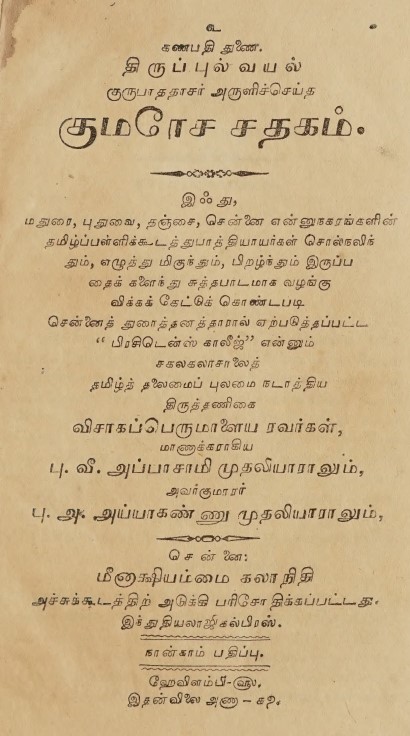 உ
கணபதி துணை.
திருப்புல்வயல்
குருபாததாசர் அருளிச்செய்த
குமரேச சதகம்.
இஃது,
மதுரை, புதுவை, தஞ்சை, சென்னை என்னுநகரங்களின்
தமிழ்ப்பள்ளிக்கூடத்துபாத்தியாயர்கள் சொல்நலிந்
தும், எழுத்து மிகுந்தும், பிறழ்ந்தும் இருப்ப
தைக் களைந்து சுத்தபாடமாக வழங்கு
விக்கக் கேட்டுக் கொண்டபடி
சென்னைத் துரைத்தனத்தாரால் ஏற்படுத்தப்பட்ட
“ பிரசிடென்ஸ் காலீஜ்” என்னும்
சகலகலாசாலைத்
தமிழ்த் தலைமைப் புலமை நடாத்திய
திருத்தணிகை
விசாகப்பெருமாளைய ரவர்கள்,
மாணாக்கராகிய
பு. வீ. அப்பாசாமி முதலியாராலும்,
அவர்குமாரர்
பு. அ. அய்யாகண்ணு முதலியாராலும்,
சென்னை:
மீனாக்ஷியம்மை கலாநிதி
அச்சுக்கூடத்திற் அடுக்கி பரிசோதிக்கப்பட்டது.
இக்துதியலாஜிகல்பிரஸ்.
நான்காம் பதிப்பு.
ஹேவிளம்பி-௵.
இதன்விலை அணா - க௨.